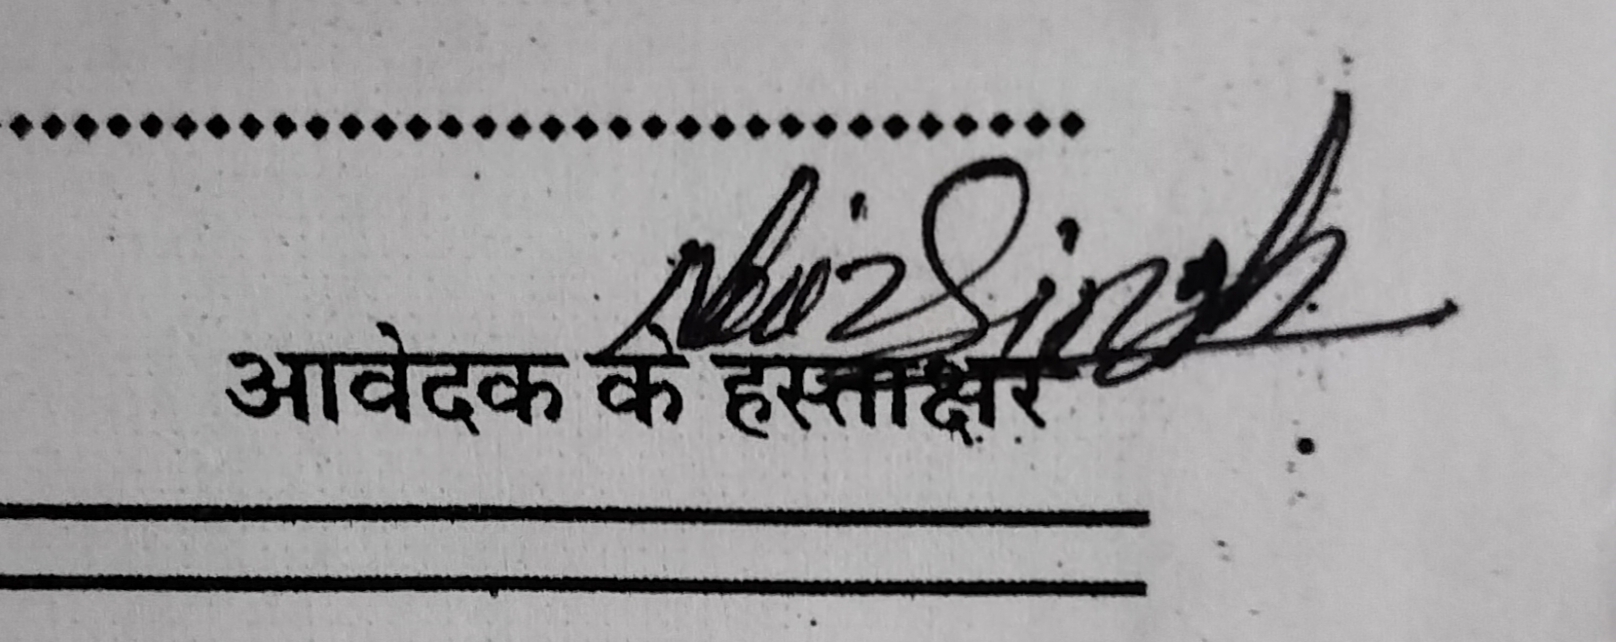 Singh
आवेदक के हस्ताक्षर